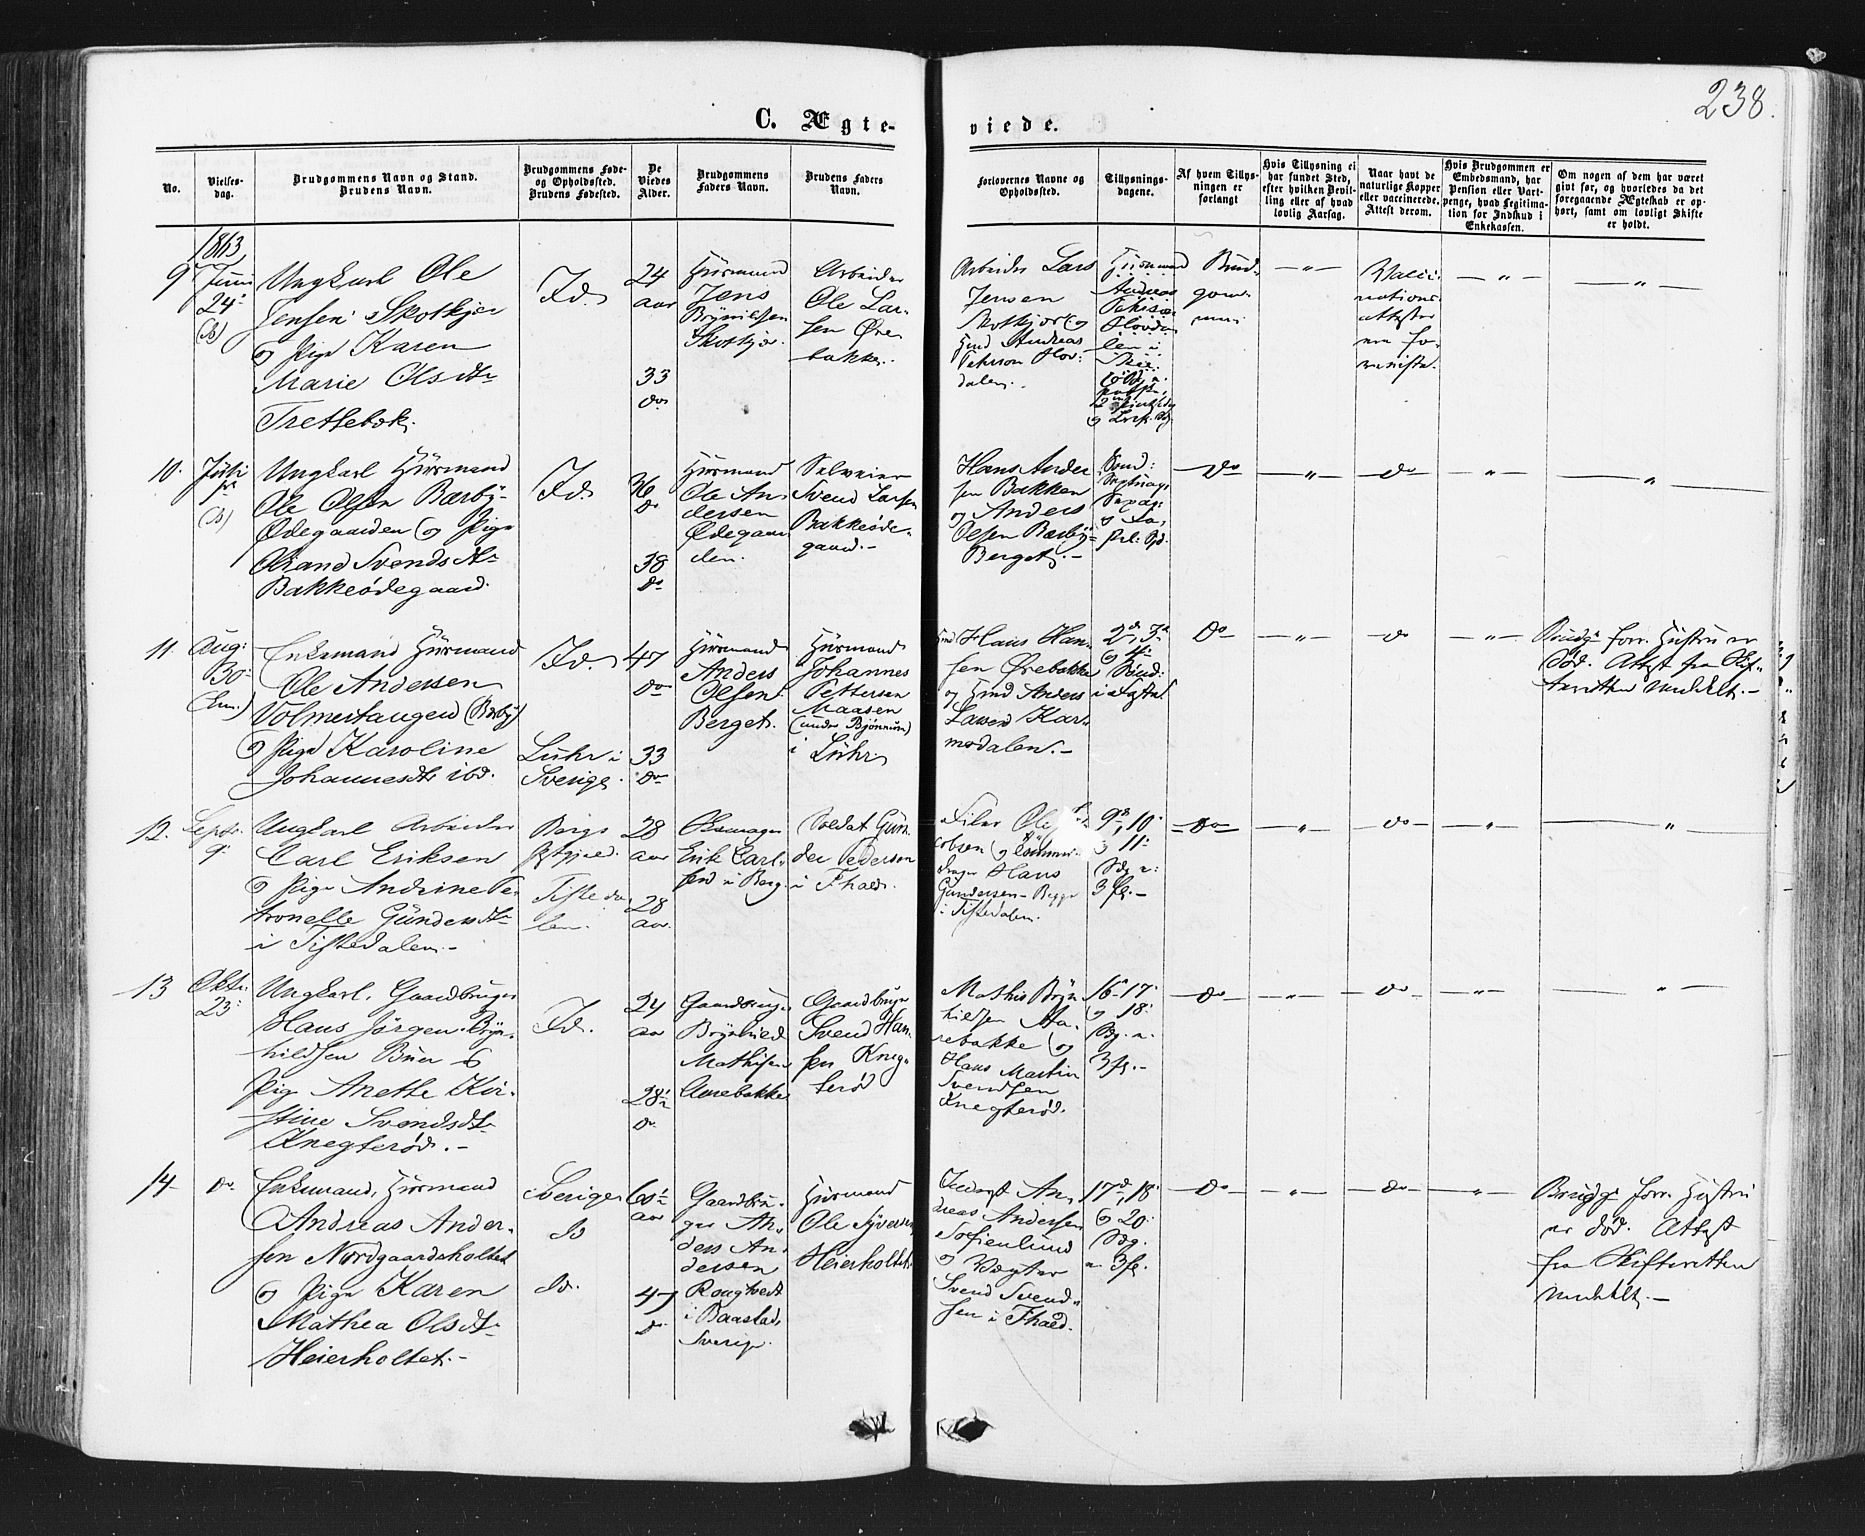 238.
C. Ægte-
viede.
No.
Vielses-
dag.
Brudgommens Navn og Stand.
Brudens Navn.
Brudgommens Føde-
og Opholdssted.
Brudens Fødested.
De
Viedes
Alder.
Brudgommens
Faders Navn.
Brudens Faders
Navn.
Forlovernes Navne og
Opholdssted.
Tillysnings-
dagene.
Af hvem Tillys-
ningen er
forlangt
Hvis Tillysning ei
har fundet Sted,
efter hvilken Bevil-
ling eller af hvad
lovlig Aarsag.
Naar havt de
naturlige Kopper
eller vaccinerede.
Attest derom.
Hvis Brudgommen er
Embedsmand, har
Pension eller Vart-
penge, hvad Legitima-
tion for Indskud i
Enkekassen.
Om nogen af dem har været
gift før, og hvorledes da det
foregaaende Ægteskab er op-
hørt, samt om lovligt Skifte
er holdt.
1863
9
Juni
24
Ungkarl Ole
Jensen Skotkjær
og Pige Karen
Marie Olsdtr
Trettebok.
Id.
24
aar
33
do
Huusmand
Jens
Brynilsen
Skotkjær
Arbeider
Ole Lar-
sen Øre-
bakke.
Arbeider Lars
Jensen
Skotkjær og
Hmd Andreas
Pehrson Hov-
dalen.
Huusmand
Andreas
Brud-
gom-
men
- " -
Vacci-
nations
attester
- " -
- " -
10.
Juli
Ungkarl Huusmand
Ole Olsen Bærby-
Ødegaarden og Pige
Svendsdtr
Bakkeødegaard.
Id.
36
do
38
do
Huusmand
Ole An-
dersen
Ødegaar-
den.
Selveier
Svend Larsen
Bakkeøde-
gaard.-
Hans Ander
sen Bakken
og Anders
Olsen Bærby-
Berget.-
Do
- " -
do
- " -
"
11
Aug:
30
Enkemand Huusmand
Ole Andersen
Volmertangen (Bærby)
og Pige Karoline
Johannesdtr ibd.
Id.
Luhr i
Sverige.
47
do
33
do
Huusmand
Anders
Olsen
Berget.
Huusmand
Johannes
Pettersen
Maasen
(under Bjørnum)
i
Luhr
Hmd Hans Han-
sen Ørebakke
og Hmd Anders
Larsen Kar-
modalen.-
Do
- " -
do
- " -
Brudg. forr. Hustru er
død. Attest fra Skif-
teretten meddelt.-
12.
Septr.
9
Ungkarl Arbeider
Carl Eriksen
og Pige Andrine Pe-
tronelle Gundersdtr
i Tistedalen.-
Bergs
Prstgjeld.
Tisteda-
len.
28
aar
28
aar.
Erik Carl-
sen i Berg.
Soldat Gun-
der Pedersen
i Fhald.
cobsen og
Hans
Gundersen-
i Tistedalen.
9, 10
11
Do
- " -
do
- " -
"
13
Oktr.
23
Ungkarl, Gaardbruger
Hans Jørgen Bryn-
hildsen Buer &
Pige Anette Kir-
stine Svendsdtr
Knegterød.-
Id.
24
aar
28
do.
Gaardbruger
Brynhild
Mathisen
Aarebakke
Gaardbruger
Svend Han-
sen Kneg-
terød
Mathis Bryn
hilsen Aa-
rebakke og
Hans Martin
Svendsen
Knegterød.
16, 17
og 18
Do
- " -
do
- " -
"
14
do.
Enkemand, Huusmand
Andreas Ander-
sen Nordgaardsholtet
og Pige Karen
Mathea Olsdtr
Heierholtet.-
Sverige
Id.
60
aar
47
do.
Gaardbru-
ger An-
ders An-
dersen
i Baastad
Sverige.
Huusmand
Ole Syversen
Heierholtet.
An-
dreas Andersen
Sofienlund
og Vægter
Svend Svend-
sen i Fhald.
17, 18
& 20
Do
- " -
do
- " -
Brudg. forr. Hustru
er død. Attest
fra Skifteretten
meddelt.-